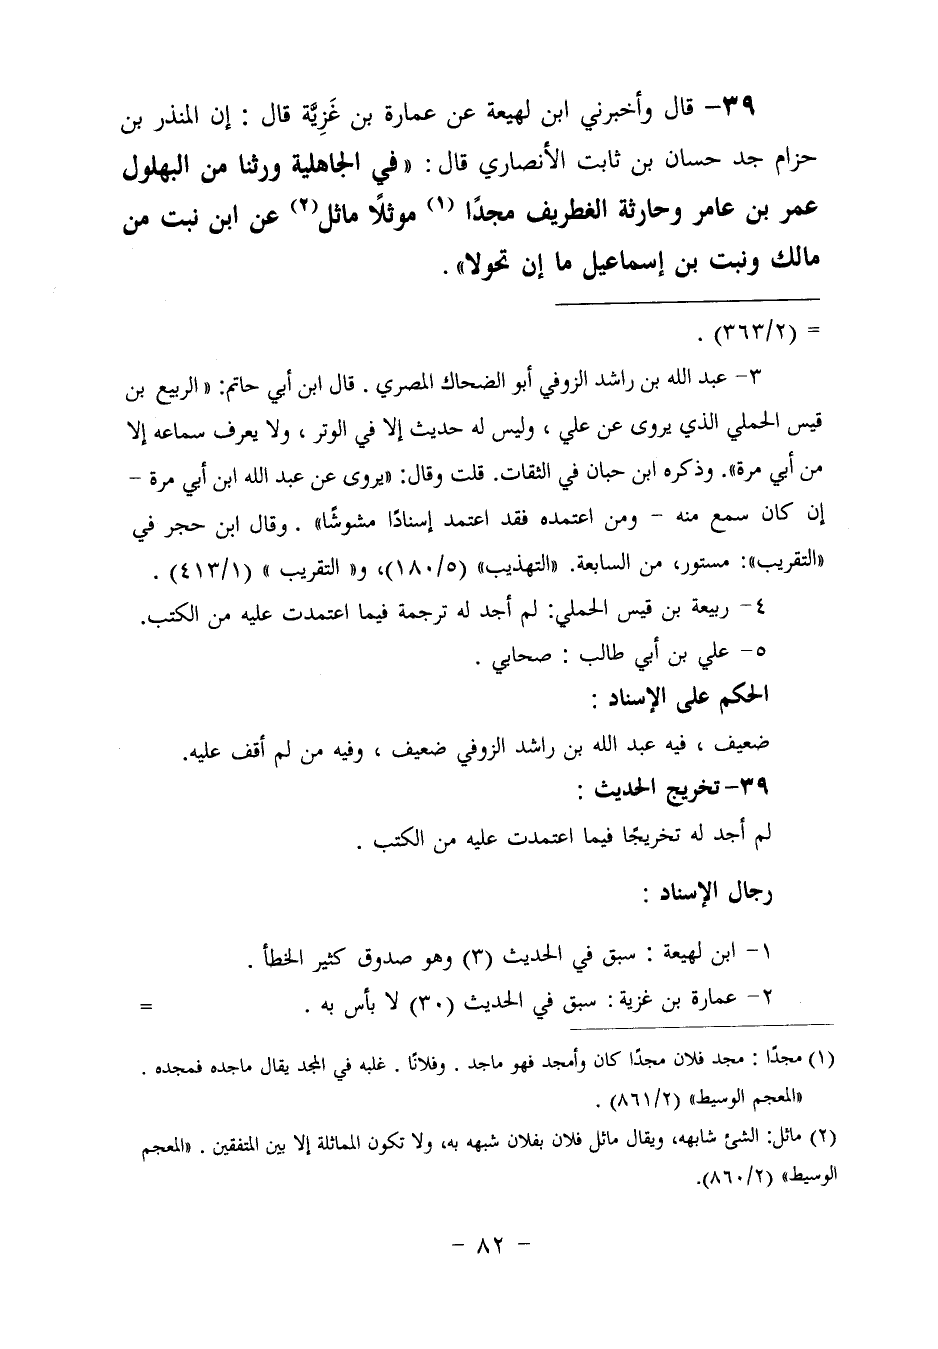 ٣٩- قال وأخبرني ابن لهيعة عن عمارة بن غَزِيَّة قال : إن المنذر بن
حزام جد حسان بن ثابت الأنصاري قال : « في الجاهلية ورثنا من البهلول
عمر بن عامر وحارثة الغطريف مجدًا (١) موثلًا ماثل(٢) عن ابن نبت من
مالك ونبت بن إسماعيل ما إن تحولا» .
= (٣٦٣/٢) .
٣- عبد الله بن راشد الزوفي أبو الضحاك المصري . قال ابن أبي حاتم: « الربيع بن
قيس الحملي الذي يروى عن علي ، وليس له حديث إلا في الوتر ، ولا يعرف سماعه إلا
من أبي مرة». وذكره ابن حبان في الثقات. قلت وقال: «يروى عن عبد الله ابن أبي مرة -
إن كان سمع منه - ومن اعتمده فقد اعتمد إسنادًا مشوشًا» . وقال ابن حجر في
«التقريب»: مستور، من السابعة. «التهذيب» (١٨٠/٥)، و« التقريب » (٤١٣/١) .
٤- ربيعة بن قيس الحملي: لم أجد له ترجمة فيما اعتمدت عليه من الكتب.
٥- علي بن أبي طالب : صحابي .
الحكم على الإسناد :
ضعيف ، فيه عبد الله بن راشد الزوفي ضعيف ، وفيه من لم أقف عليه.
٣٩- تخريج الحديث :
لم أجد له تخريجًا فيما اعتمدت عليه من الكتب .
رجال الإسناد :
١- ابن لهيعة : سبق في الحديث (٣) وهو صدوق كثير الخطأ .
٢- عمارة بن غزية : سبق في الحديث (٣٠) لا بأس به . =
(١) مجدًا : مجد فلان مجدًا كان وأمجد فهو ماجد . وفلانًا . غلبه في المجد يقال ماجده فمجده .
«المعجم الوسيط» (٨٦١/٢) .
(٢) ماثل: الشئ شابهه، ويقال ماثل فلان بفلان شبهه به، ولا تكون المماثلة إلا بين المتفقين . «المعجم
الوسيط» (٨٦٠/٢).
- ٨٢ -